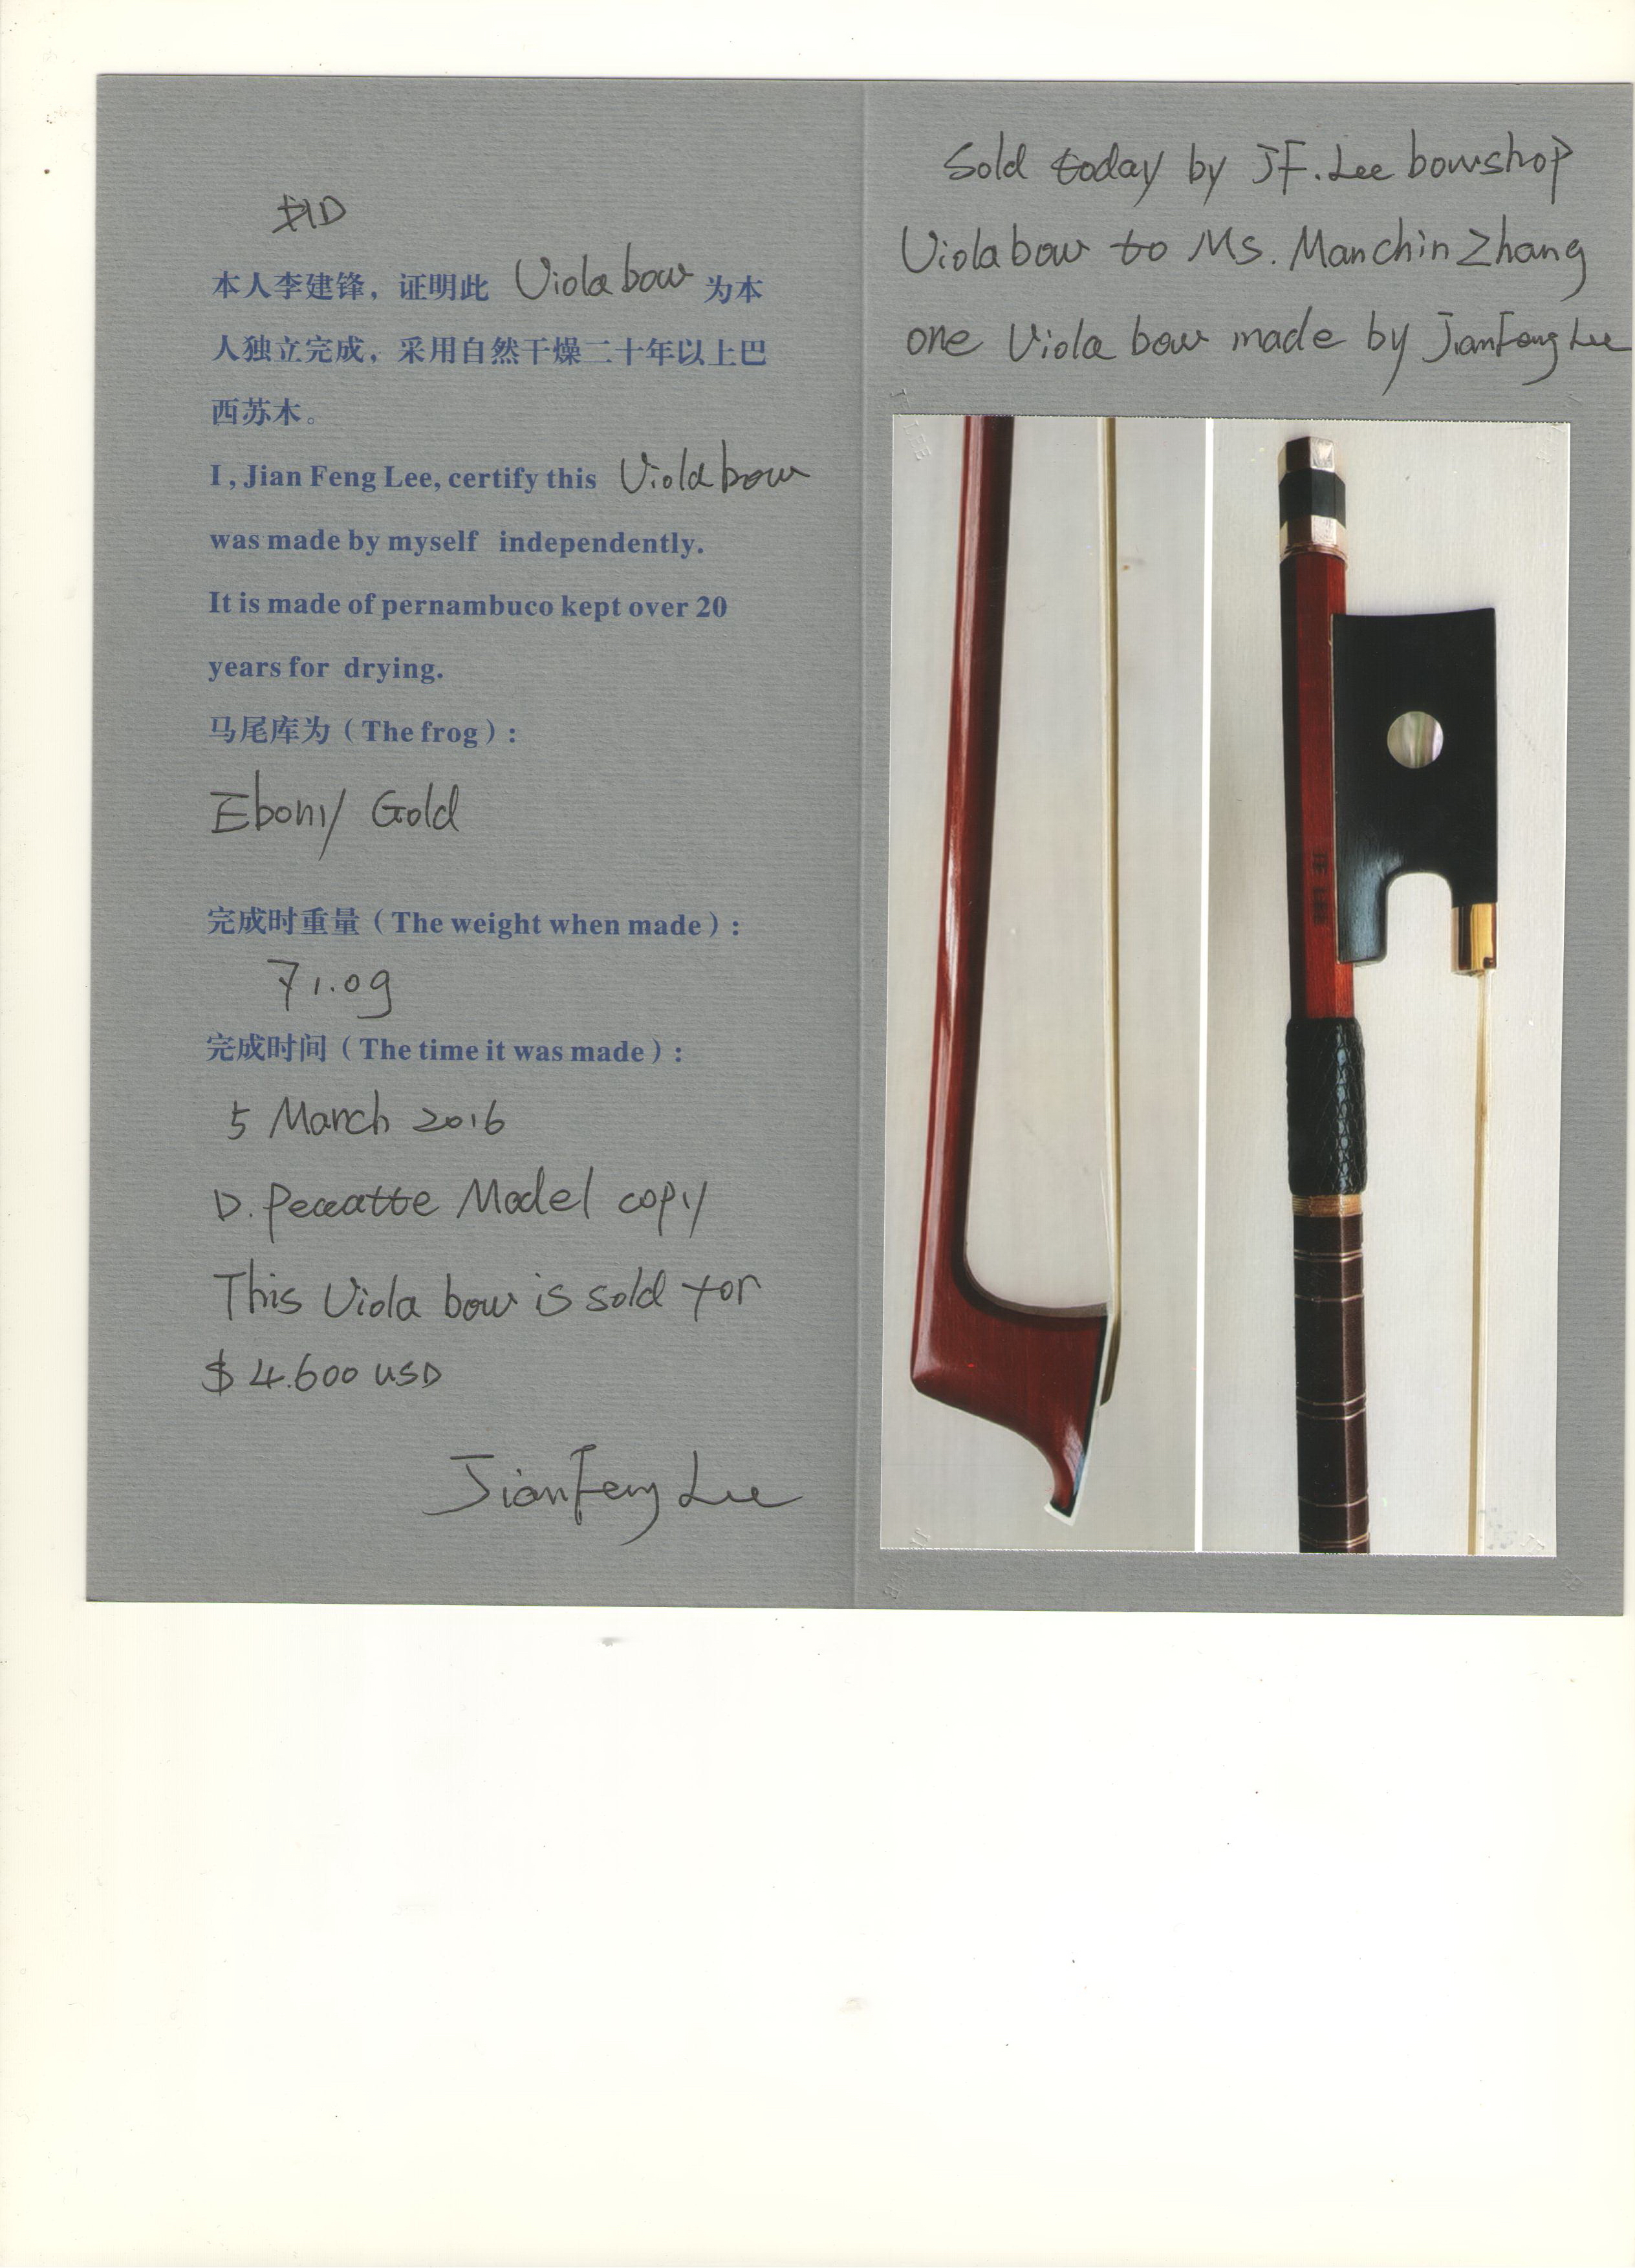 本人李建锋，证明此 Viola bow 为本
人独立完成，采用自然干燥二十年以上巴
西苏木。
I , Jian Feng Lee, certify this Viola bow
was made by myself independently.
It is made of pernambuco kept over 20
years for drying.
马尾库为（The frog）:
Ebony Gold
完成时重量（The weight when made）:
71.0g
完成时间（The time it was made）:
5 March 2016
D. Peccatte Model copy
This Viola bow is sold for
$ 4.600 USD
JianFeng Lee
Sold today by JF. Lee bowshop
Viola bow to Ms. Manchin Zhang
one Viola bow made by JianFeng Lee